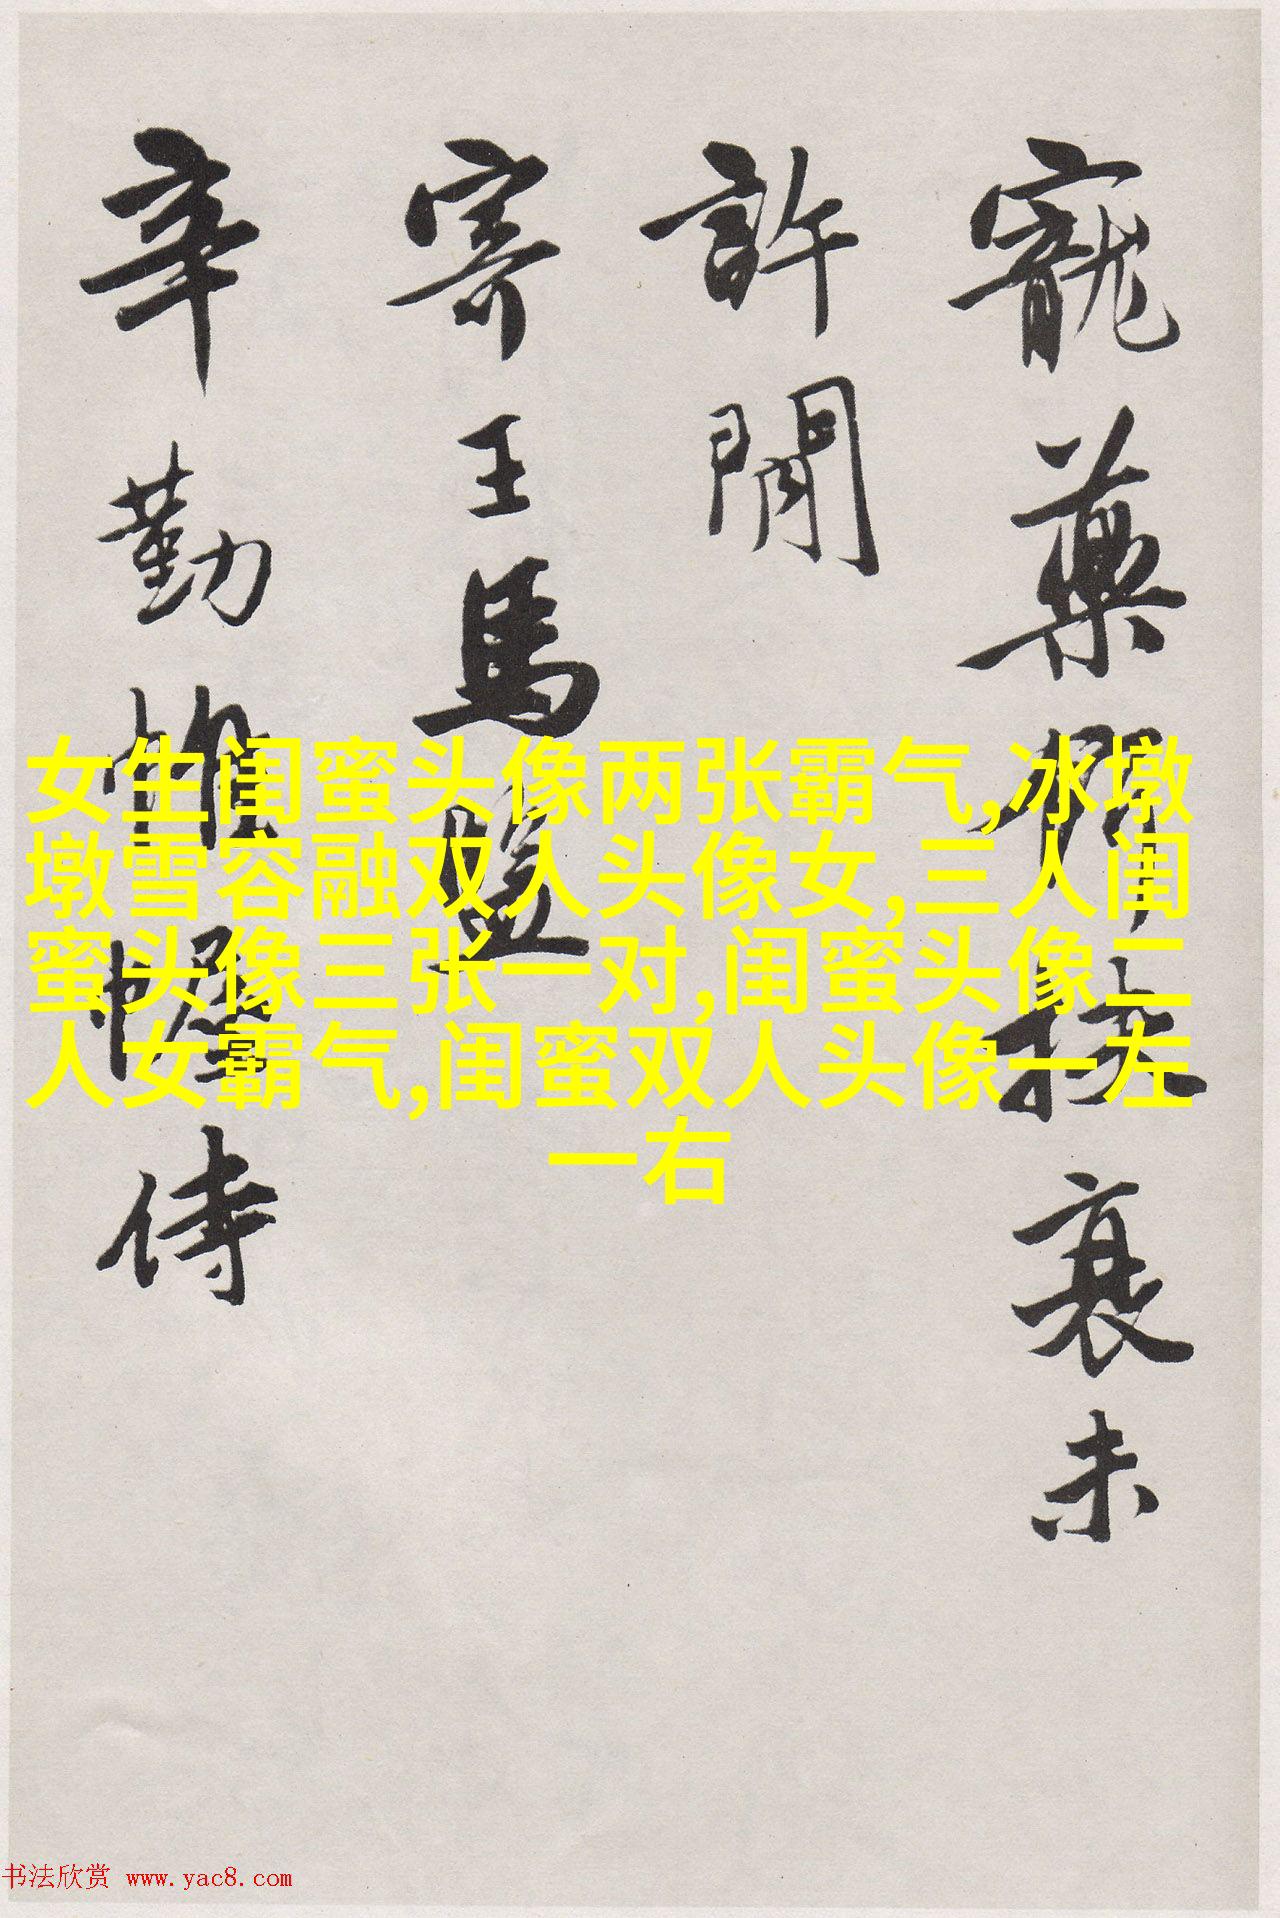 寵藥扶衰未
許閒
寄王馬監
辛勤帷幄侍
女生闺蜜头像两张霸气,冰墩
墩雪容融双人头像女,三人闺
蜜头像三张一对,闺蜜头像二
人女霸气,闺蜜双人头像一左
一右
书法欣赏 www.yac8.com